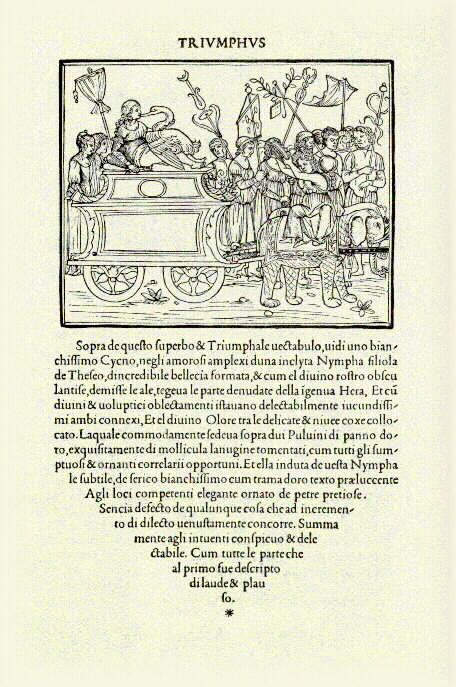 TRIVMPHVS
Sopra de questo superbo & Triumphale uectabulo, uidi uno bian-
chissimo Cycno, negli amorosi amplexi duna inclyta Nympha filiola
de Theseo, dincredibile bellecia formata, & cum el diuino rostro obscu
lantise, demisse le ale, tegeua le parte denudate della igenua Hera, Et cū
diuini & uoluptici oblectamenti istauano delectabilmente iucundissi-
mi ambi connexi, Et el diuino Olore tra le delicate & niuee coxe collo-
cato. Laquale commodamente sedeua sopra dui Puluini di panno do-
ro, exquisitamente di mollicula lanugine tomentati, cum tutti gli sum-
ptuosi & ornanti correlarii opportuni. Et ella induta de uesta Nympha
le subtile, de serico bianchissimo cum trama doro texto præluccente
Agli loci competenti elegante ornato de petre pretiose.
Sencia defecto de qualunque cosa che ad incremen-
to di dilecto uenustamente concorre. Summa
mente agli intuenti conspicuo & dele
ctabile. Cum tutte le parte che
al primo fue descripto
di laude & plau
so.
*